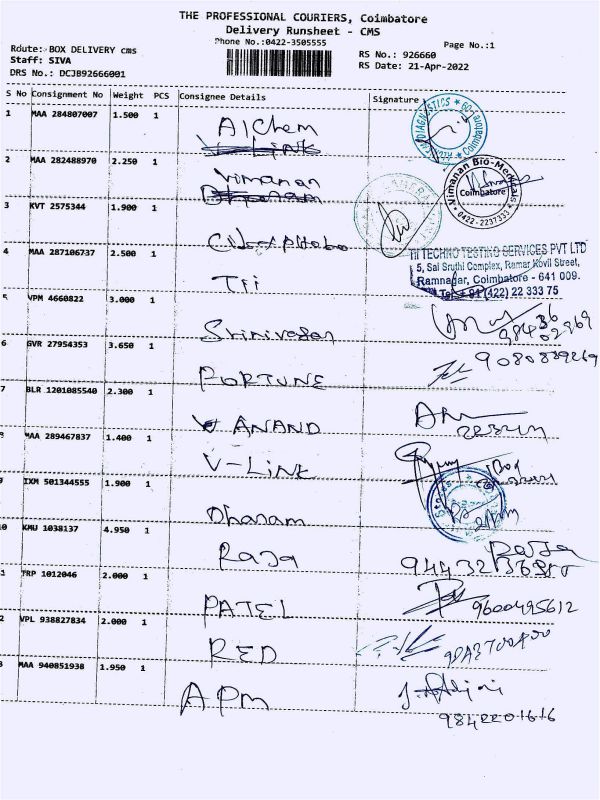 THE PROFESSIONAL COURIERS, Coimbatore
Delivery Runsheet - CMS
Phone No.:0422-3505555
Page No.:1
Rdute: BOX DELIVERY cms
Staff: SIVA
DRS No.: DCJB92666001
RS No.: 926660
RS Date: 21-Apr-2022
S No Consignment No Weight PCS Consignee Details Signature
1 MAA 284807007 1.500 1
Alchem
V-LINK
2 MAA 282488970 2.250 1
Vimanan
Vimanan Bio-Medicals
Coimbatore
0422-2237333
3 KVT 2575344 1.900 1
4 MAA 287106737 2.500 1
TTI
TTI TECHNO TESTING SERVICES PVT LTD
5, Sai Sruthi Complex, Ramar Kovil Street,
Ramnagar, Coimbatore - 641 009.
Tel: + 91 (422) 22 333 75
5 VPM 4660822 3.000 1
Srinivasan
6 GVR 27954353 3.650 1
FORTUNE
9080839269
7 BLR 1201085540 2.300 1
ANAND
8 MAA 289467837 1.400 1
V-LINK
9 IXM 501344555 1.900 1
Dharam
0 KMU 1038137 4.950 1
Raja
Raja
1 TRP 1012046 2.000 1
PATEL
9600495612
2 VPL 938827834 2.000 1
RED
3 MAA 940851938 1.950 1
APM
9842201616